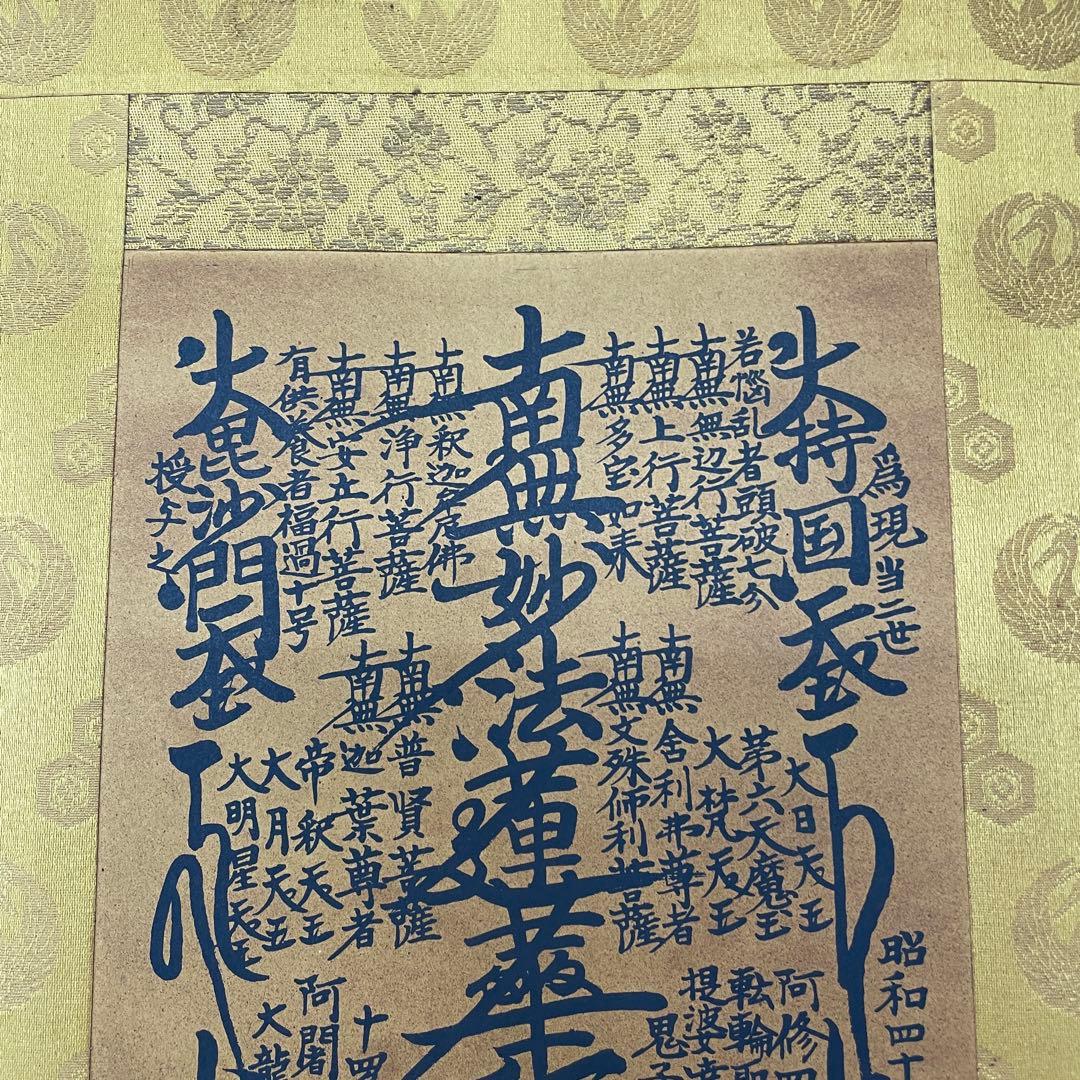 為現当二世
昭和四十
大持国天王
若悩乱者頭破七分
南無無辺行菩薩
南無上行菩薩
南無多宝如来
南無妙法蓮華
南無釈迦牟尼佛
南無浄行菩薩
南無安立行菩薩
有供養者福過十号
大毘沙門天王
授与之
大日天王
第六天魔王
大梵天王
南無舎利弗尊者
南無文殊師利菩薩
南無普賢菩薩
南無迦葉尊者
帝釈天王
大月天王
大明星天王
阿修
転輪聖
提婆達
鬼子
十四
阿闍
大龍